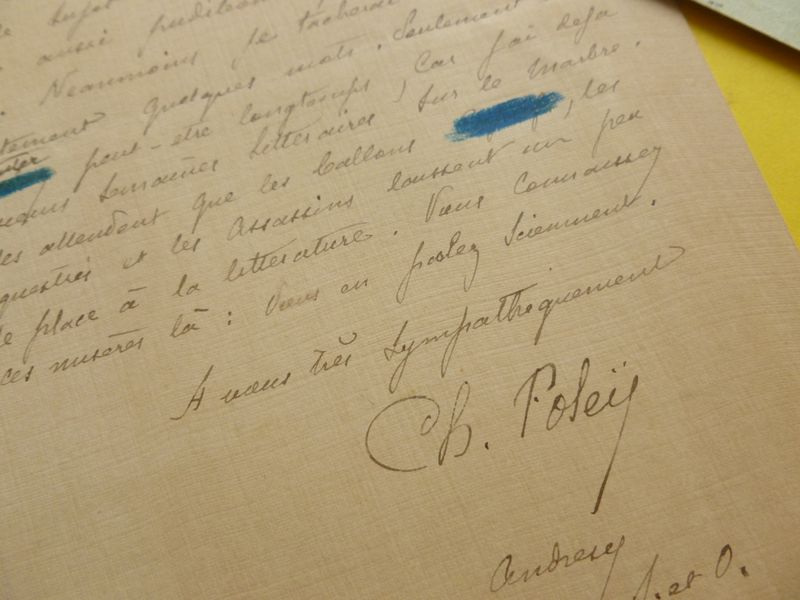 le sujet
aussi pudibon
. Néanmoins je tâcherai
quelques mots. Seulement
peut-être longtemps, car j'ai déjà
semaines littéraires sur le marbre.
attendent que les ballons , les
et les assassins laissent un peu
de place à la littérature. Vous connaissez
ces misères là : Vous en parlez sciemment.
A vous très sympathiquement
Ch. Foleÿ
Andresy
S. et O.